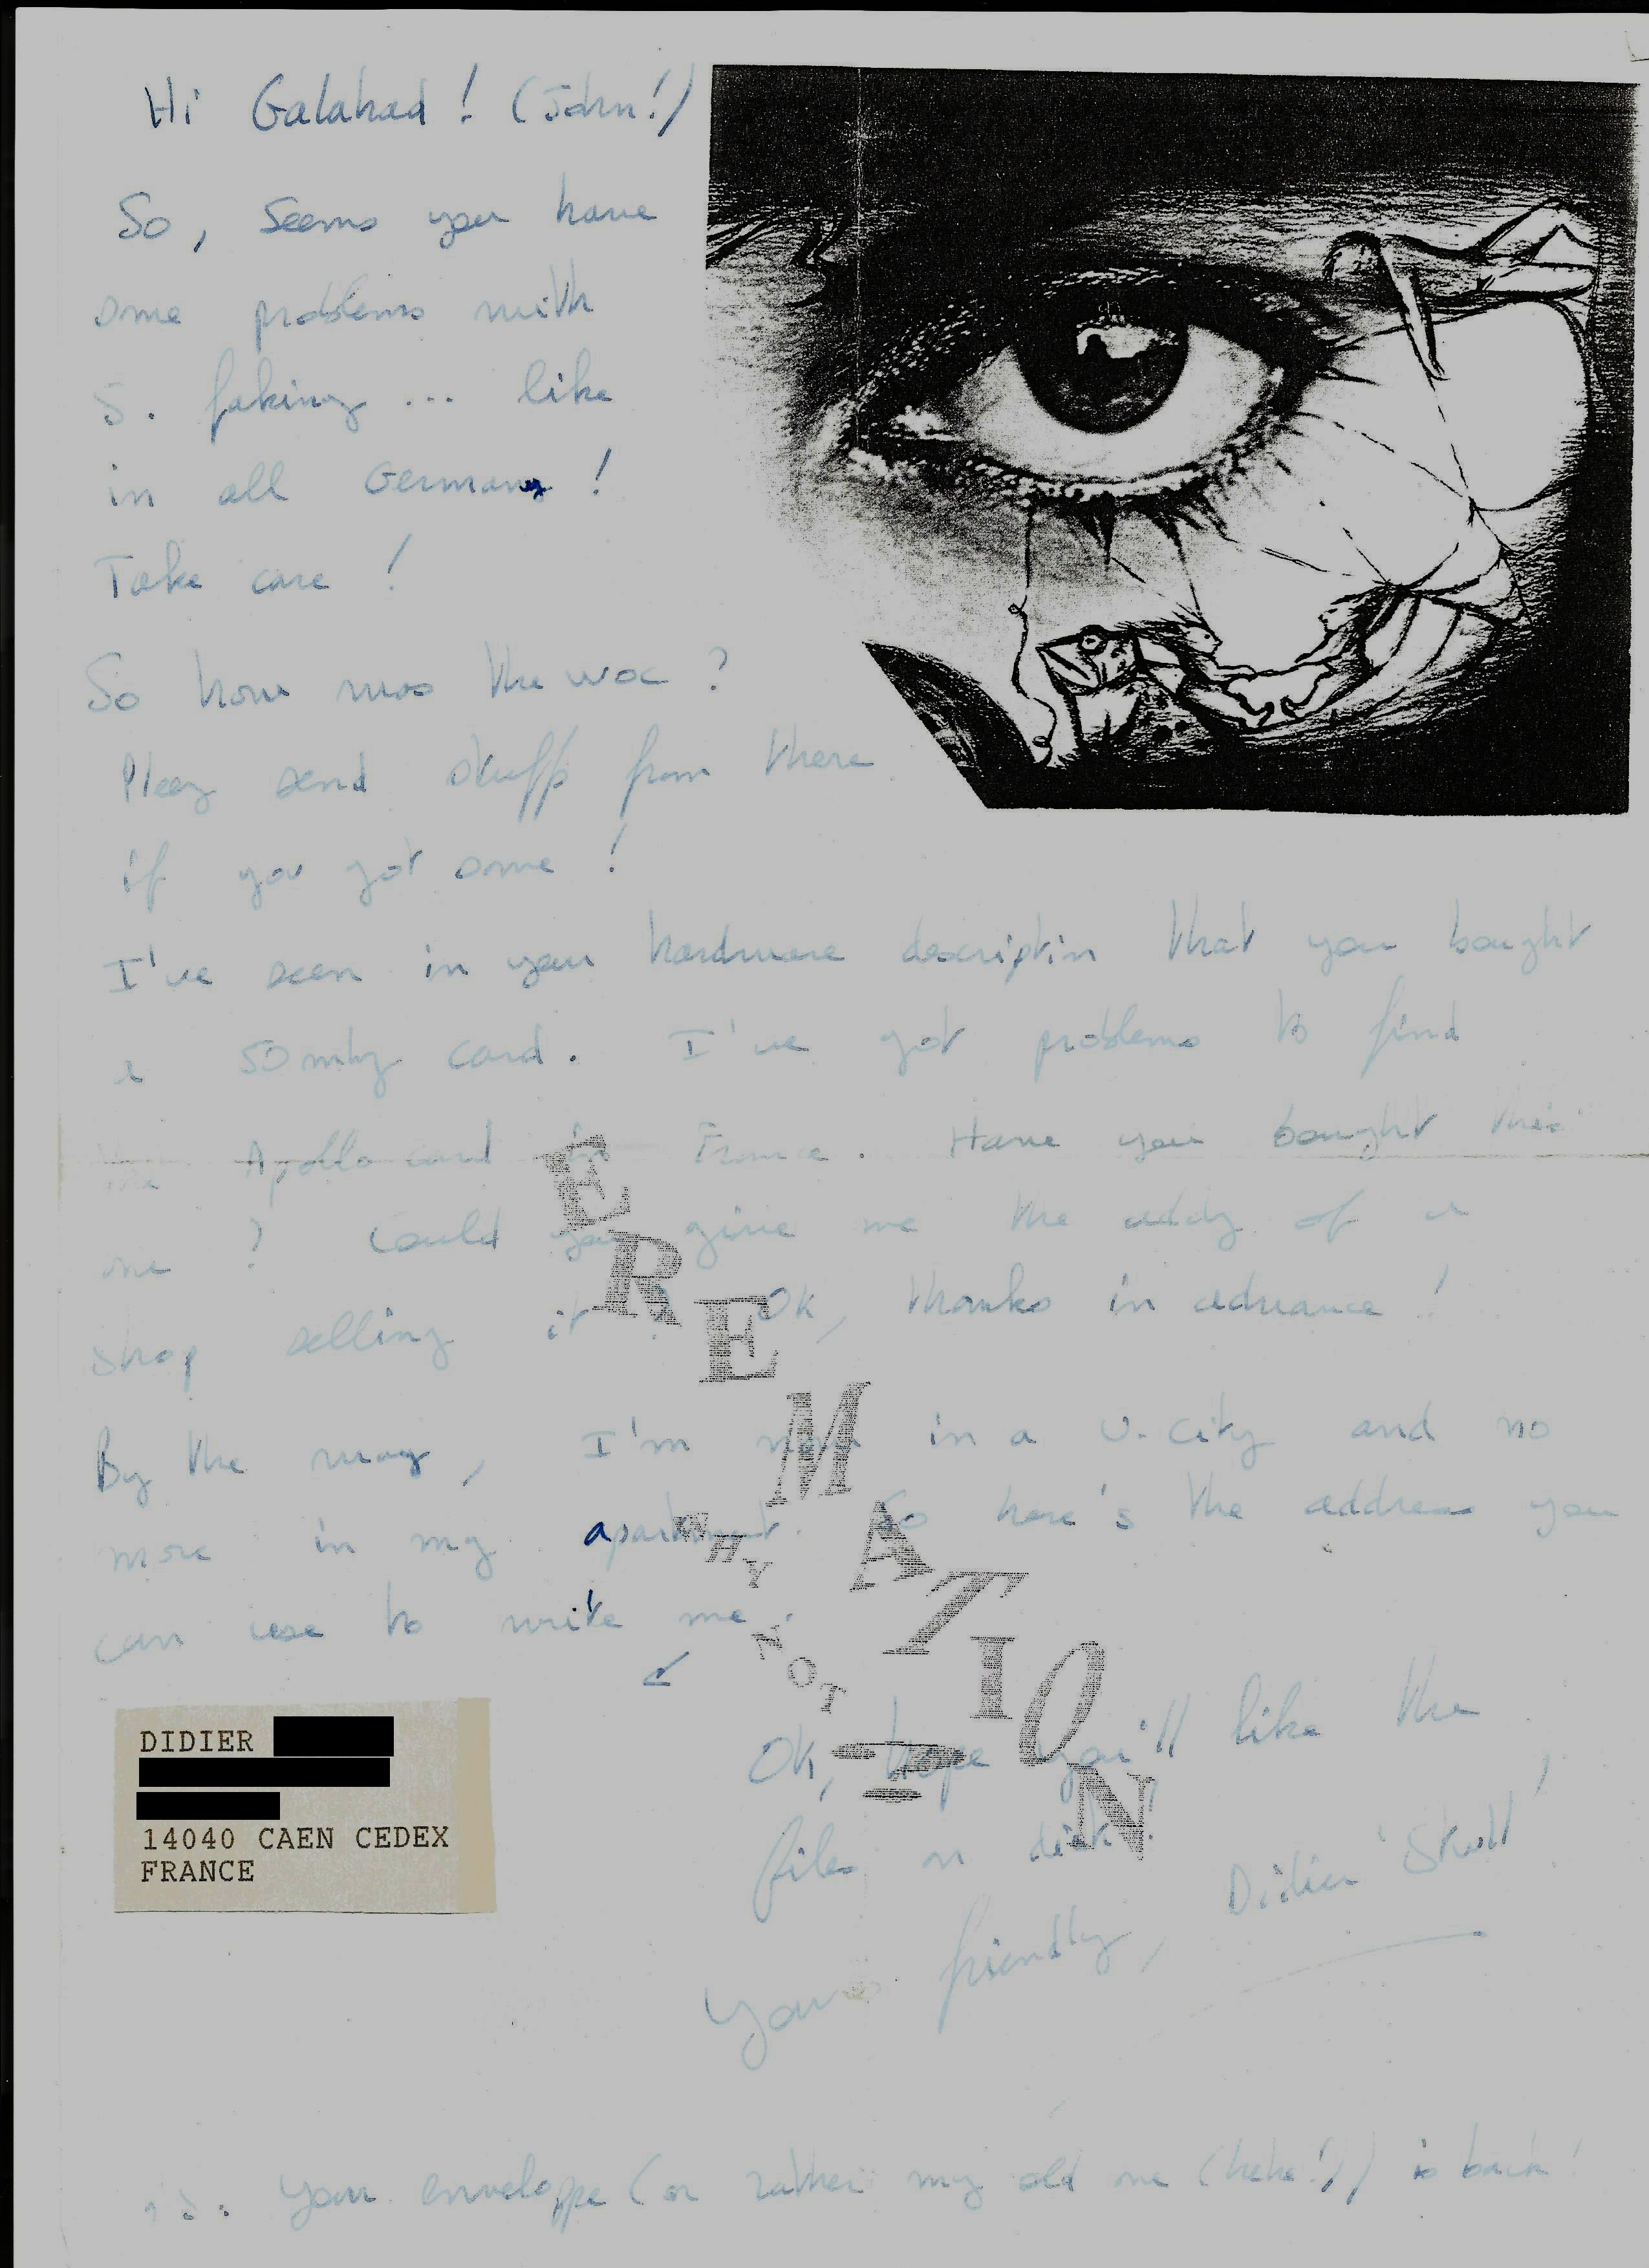 Hi Galahad ! (John!)
So, Seems you have
some problems with
S. faking ... like
in all Germany !
Take care !
So how was the WOC ?
Pleez send stuffs from there
if you got some !
I've seen in your hardware description that you bought
a 50 mhz card. I've got problems to find
the Apollo card in France. Have you bought this
one ? Could you give me the addy of a
shop selling it ? OK, thanks in advance !
By the way, I'm now in a U-City and no
more in my apartment. So here's the address you
can use to write me.
CREMATION
WHY NOT
?
DIDIER
14040 CAEN CEDEX
FRANCE
OK, hope you'll like the
files on disk !
Your friendly, Didier 'Skull'
P.S: Your enveloppe (or rather my old one (hehe!)) is back!